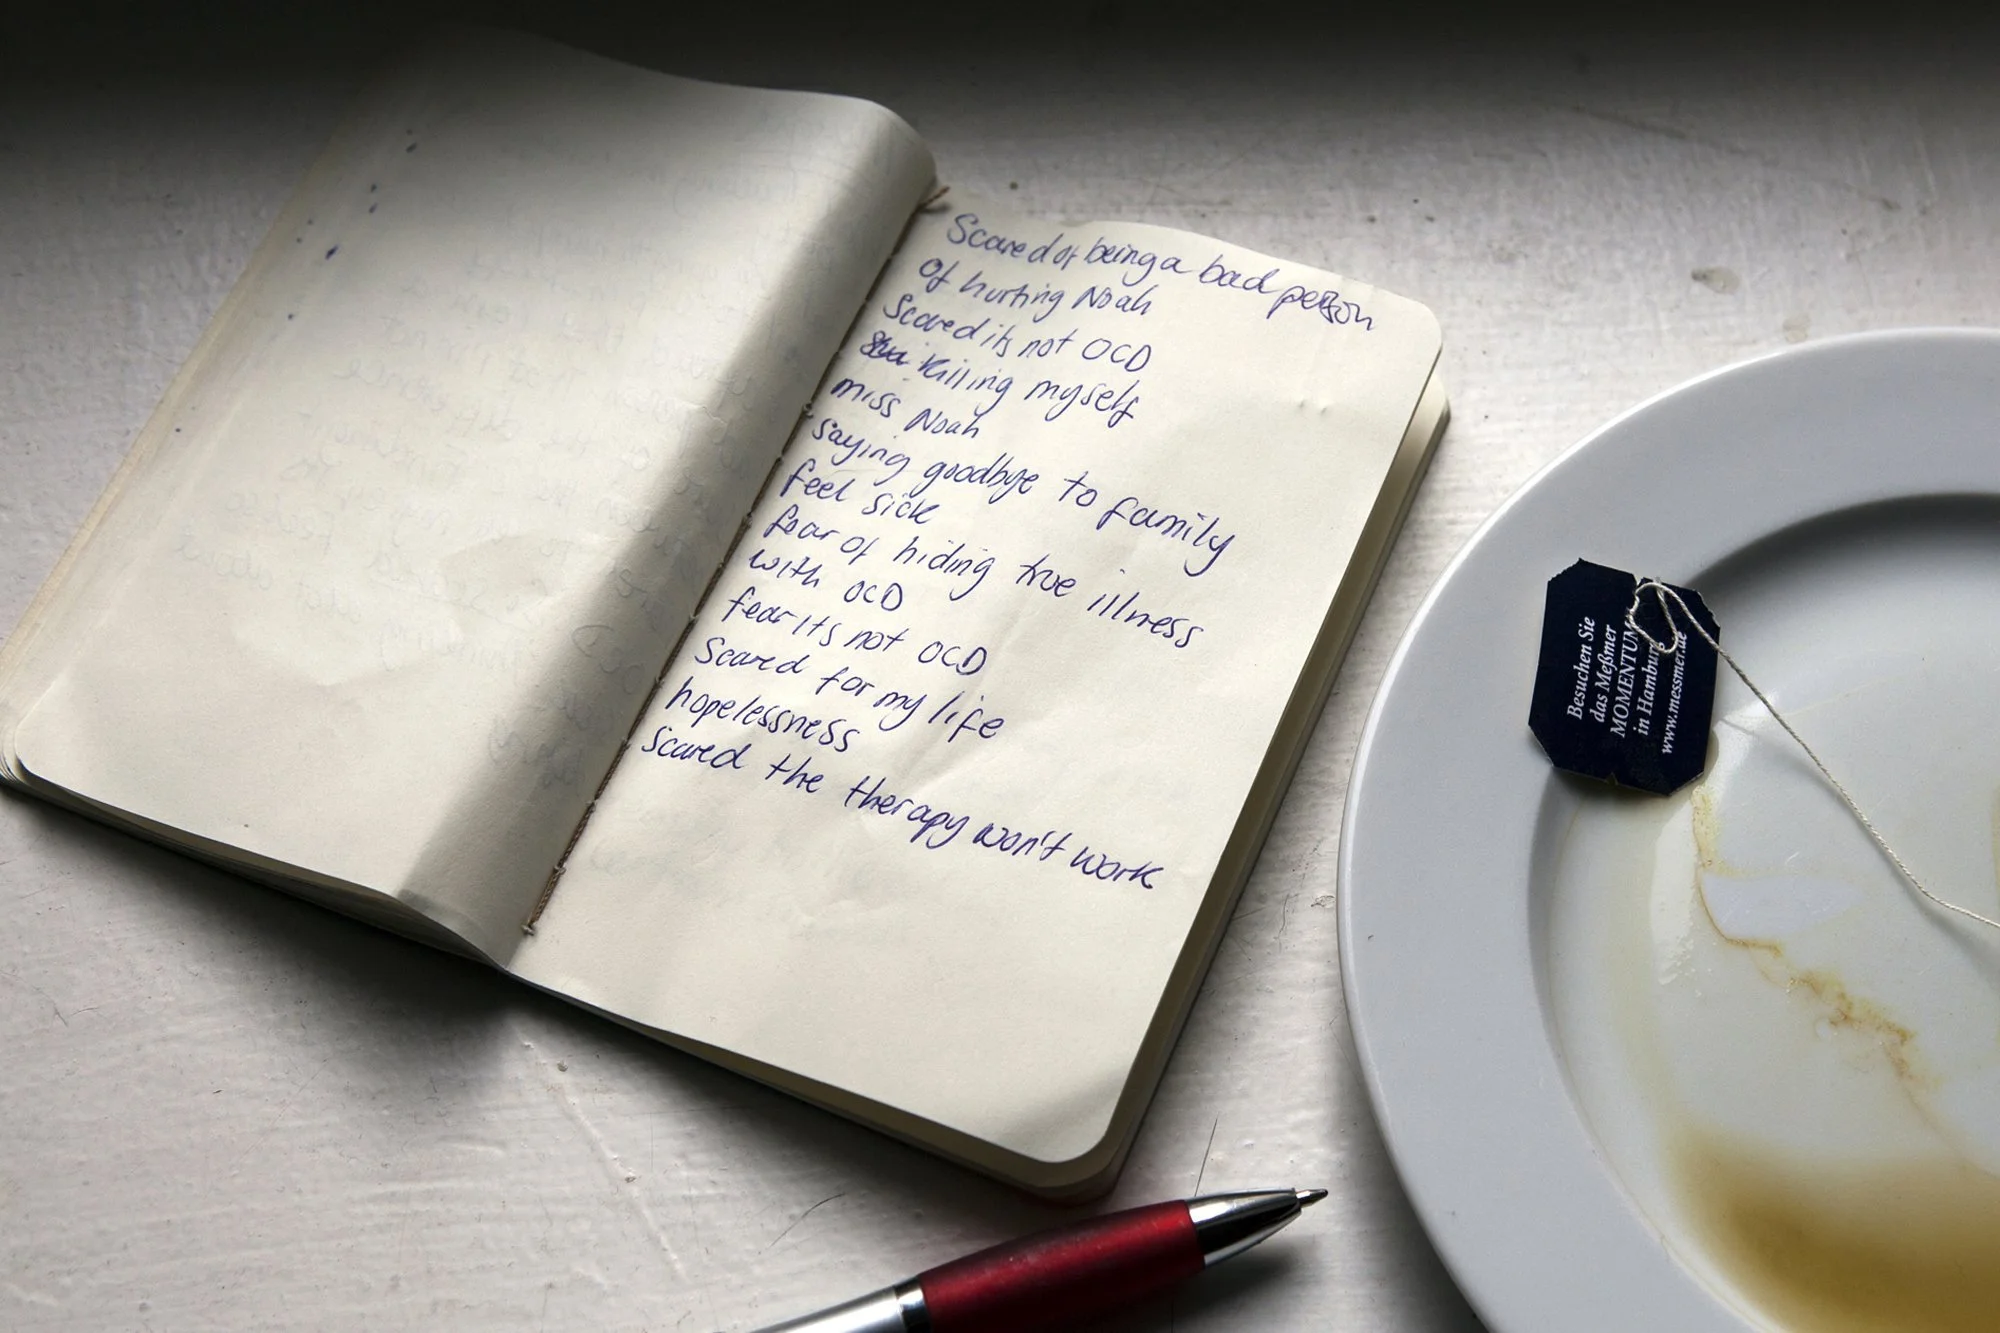 Scared of being a bad person
Of hurting Noah
Scared its not OCD
killing myself
miss Noah
saying goodbye to family
feel sick
fear of hiding true illness
with OCD
fear its not OCD
Scared for my life
hopelessness
scared the therapy won't work
Besuchen Sie
das Meßmer
MOMENTUM
in Hamburg
www.messmer.de